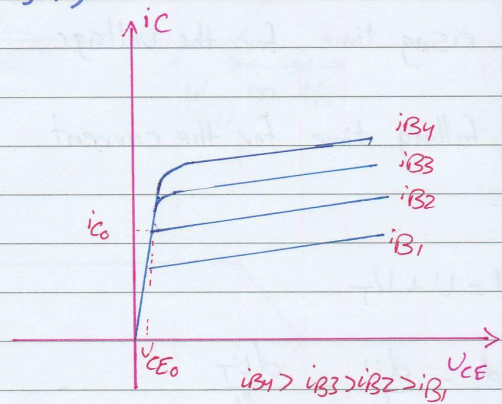 iC
iB4
iB3
iB2
iC0
iB1
vCE0
vCE
iB4 > iB3 > iB2 > iB1